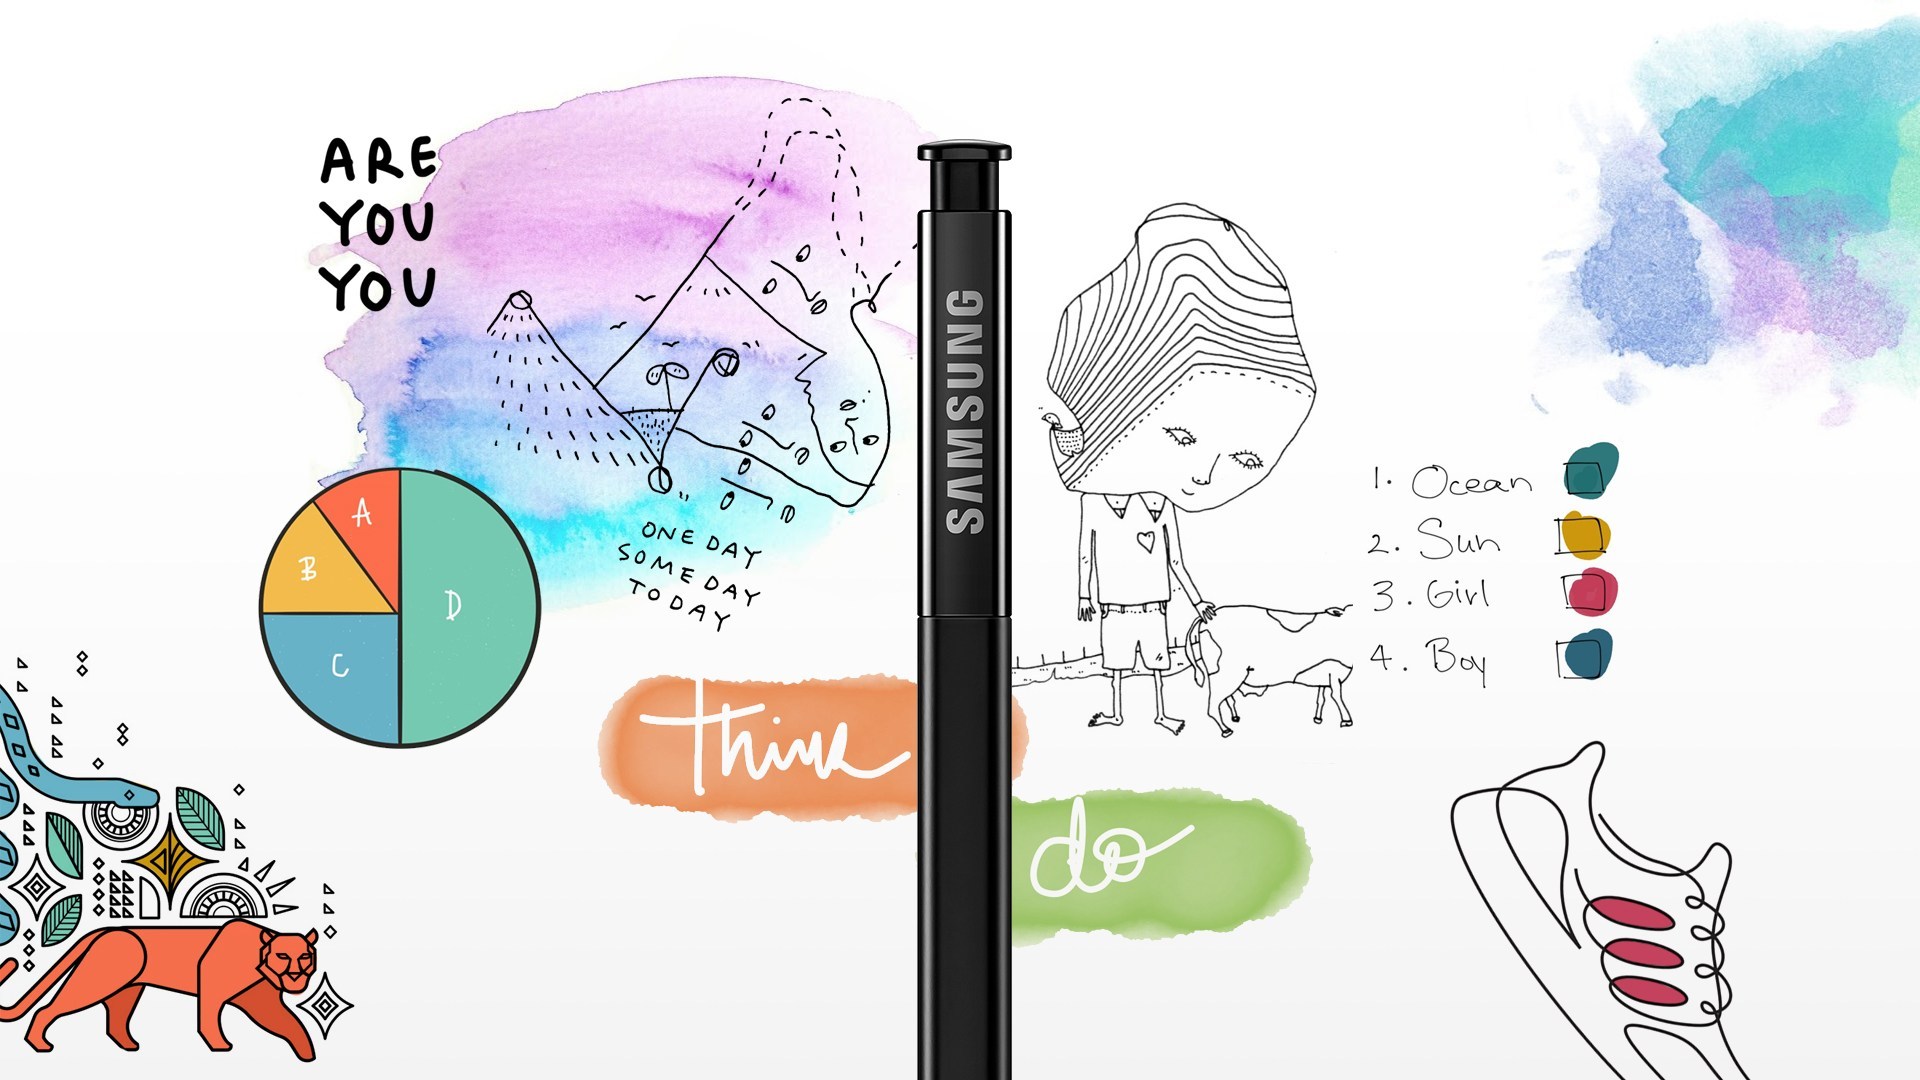 ARE
YOU
YOU
A
B
C
D
ONE DAY
SOMEDAY
TODAY
Think
do
SAMSUNG
1. Ocean
2. Sun
3. Girl
4. Boy